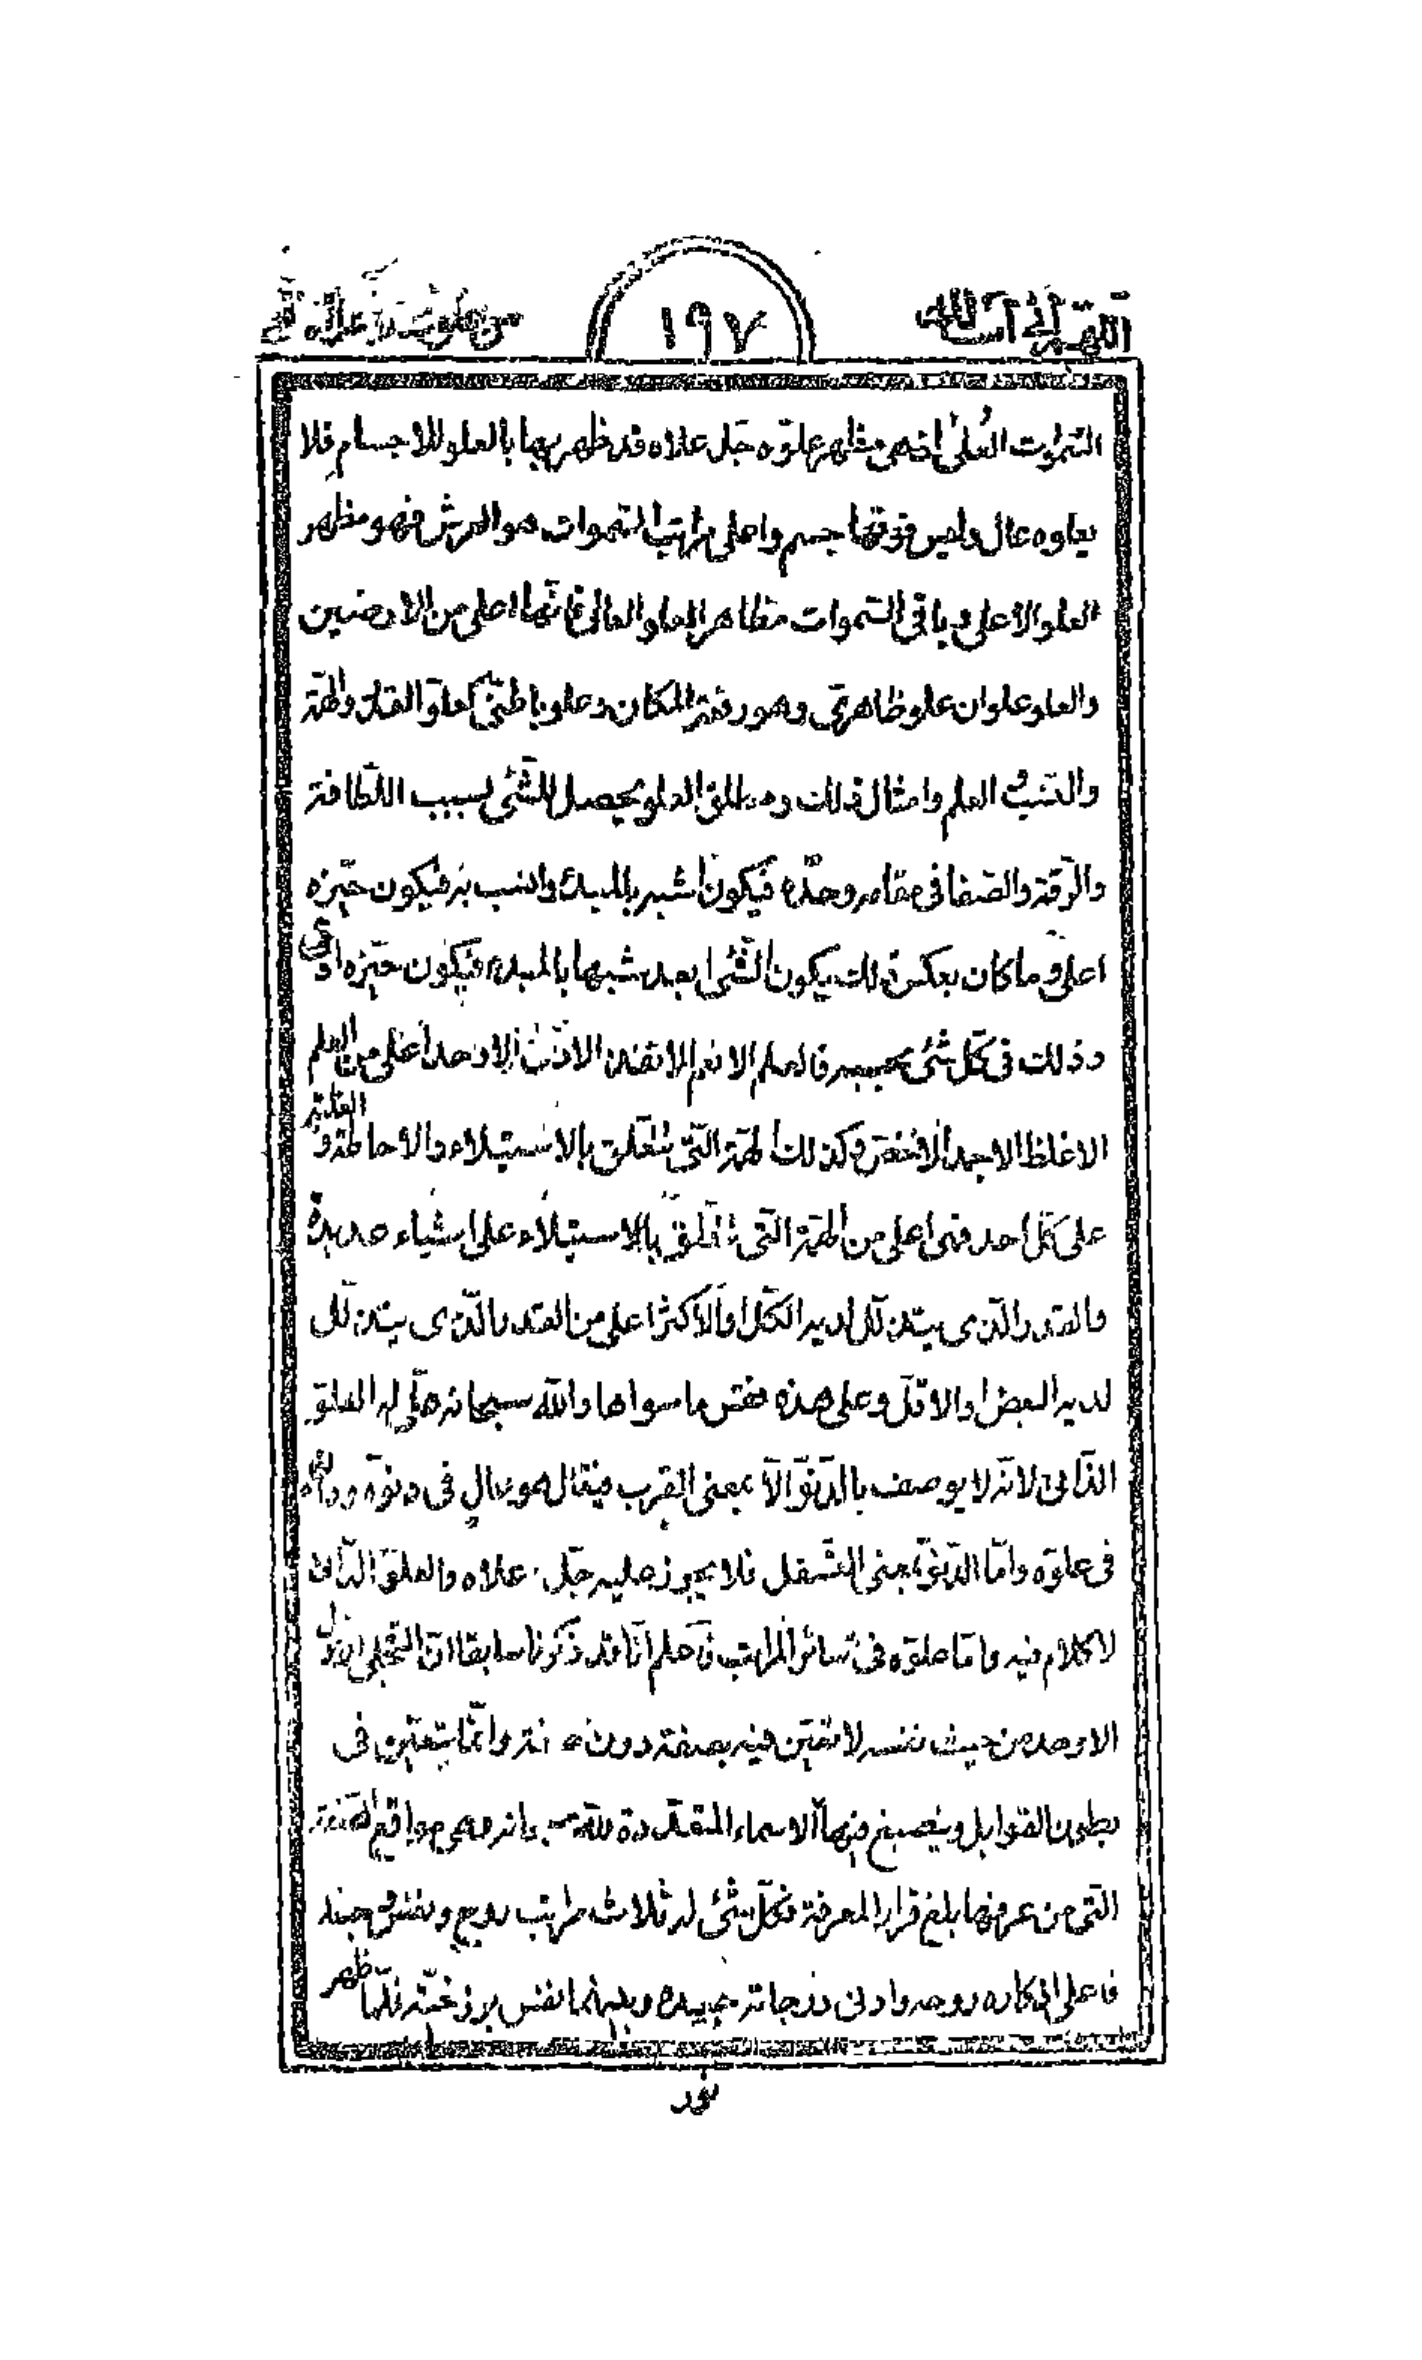 اللهم إني أسألك
١٩٧
من علوك
السموات العلى اذ هى مظهر علوّه جل علاه قد ظهر بها بالعلو للاجسام فلا
يعلوه عال وليس فوقها جسم واعلى مراتب السموات هو العرش فهو مظهر
العلو الاعلى وباقى السموات مظاهر العلو العالى فانها اعلى من الارضين
والعلو علوان علو ظاهرى وهو رفعة المكان وعلو باطنى كعلو القدر والهمة
والنسب العلم وامثال ذلك ومطلق العلو يحصل للشئ بسبب اللطافة
والرقة والصفا فى مقامه وحده فيكون اشبه بالمبدء وانسب به فيكون حيزه
اعلى وما كان بعكس ذلك يكون الشئ ابعد شبها بالمبدء فيكون حيزه ادنى
وذلك فى كل شئ بحسبه فالعلم الانعم الاتقن الاوحد اعلى من العلم
الاغلظ الاجمد وكذلك الهمة التى تتعلق بالاستيلاء والاحاطة و الغلبة
على كل احد فهى اعلى من الهمة التى تتعلق بالاستيلاء على اشياء عديدة
والقدر الذى يتذلل لديه الكل او الاكثر اعلى من القدر الذى يتذلل
لديه البعض او الاقل وعلى هذه فقس ما سواها والله سبحانه له العلو
الذاتى لانه لا يوصف بالدنو الا بمعنى القرب فيقال هو عال فى دنوه ودان
فى علوه واما الدنو بمعنى التسفل فلا يجوز عليه جل علاه والعلو الذاتى
لا كلام فيه واما علوه فى سائر المراتب فاعلم انا قد ذكرنا سابقا ان التجلى الاول
الاوحد من حيث نفسه لا تعين فيه بصفة دون صفة وانما يتعين فى
بطون القوابل وينصبغ فيها الاسماء المتعددة لله سبحانه وهى مواقع الصفة
التى من عرفها بلغ قرار المعرفة فكل شئ له ثلاث مراتب روح ونفس وجسد
فاعلى اذكاره روحه وادنى درجاته جسده وبينهما نفس برزخية فلما ظهر
نور